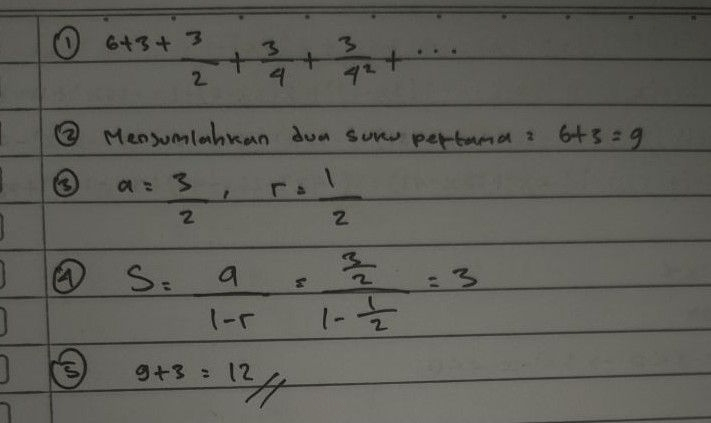 ① 6+3+ 3/2 + 3/4 + 3/4² + ...
② Menjumlahkan dua suku pertama = 6+3 = 9
③ a = 3/2 , r = 1/2
④ S = a/(1-r) = (3/2)/(1 - 1/2) = 3
⑤ 9+3 = 12 //